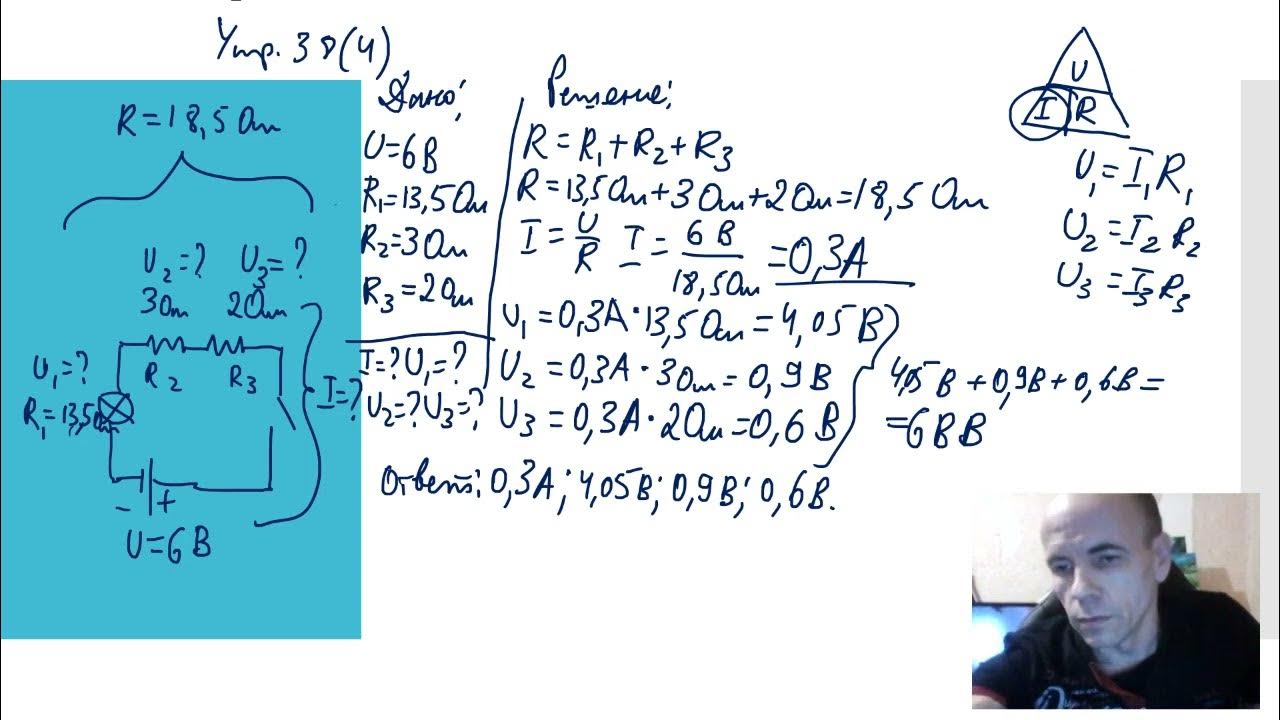 Упр. 38(4)
R=18,5 Ом
U₂=? U₃=?
3Ом 2Ом
R₂ R₃
U₁=?
R₁=13,5Ом
I=?
- +
U=6 В
Дано:
U=6В
R₁=13,5Ом
R₂=3Ом
R₃=2Ом
I=? U₁=?
U₂=? U₃=?
Решение:
R=R₁+R₂+R₃
R=13,5Ом+3Ом+2Ом=18,5 Ом
I=U/R I=6 В/18,5Ом=0,3А
U₁=0,3А·13,5Ом=4,05В
U₂=0,3А·3Ом=0,9В
U₃=0,3А·2Ом=0,6В
4,05В+0,9В+0,6В=
=6ВВ
Ответ: 0,3А; 4,05В; 0,9В; 0,6В.
U
I R
U₁=I₁R₁
U₂=I₂R₂
U₃=I₃R₃